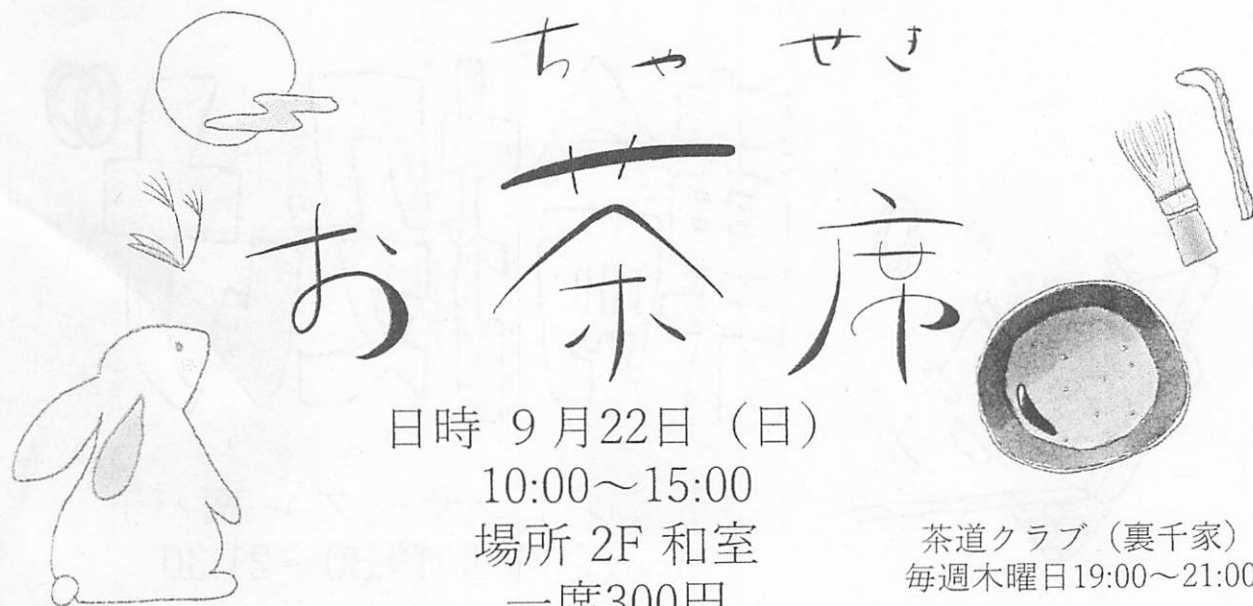 ちゃ せき
お茶席
日時 9月22日（日）
10:00～15:00
場所 2F 和室
一席300円
茶道クラブ（裏千家）
毎週木曜日19:00～21:00